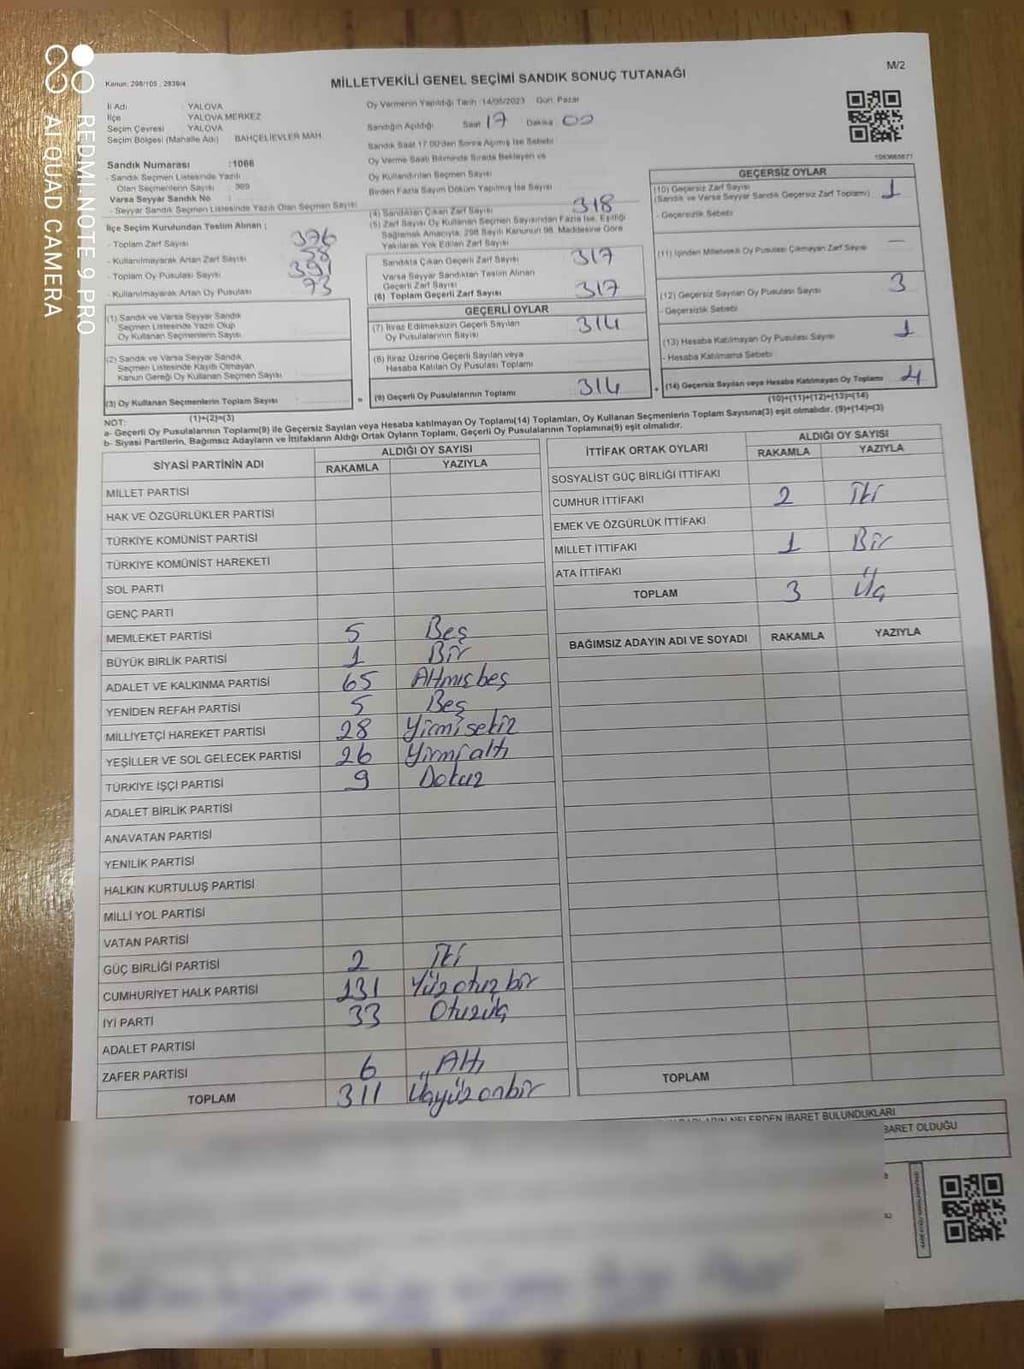 REDMI NOTE 9 PRO
AI QUAD CAMERA
Kanun: 298/105 , 2839/4
MİLLETVEKİLİ GENEL SEÇİMİ SANDIK SONUÇ TUTANAĞI
M/2
İl Adı : YALOVA
İlçe : YALOVA MERKEZ
Seçim Çevresi : YALOVA
Seçim Bölgesi (Mahalle Adı) BAHÇELİEVLER MAH.
Sandık Numarası :1066
- Sandık Seçmen Listesinde Yazılı
Olan Seçmenlerin Sayısı : 369
Varsa Seyyar Sandık No :
- Seyyar Sandık Seçmen Listesinde Yazılı Olan Seçmen Sayısı
İlçe Seçim Kurulundan Teslim Alınan ;
- Toplam Zarf Sayısı 376
- Kullanılmayarak Artan Zarf Sayısı 58
- Toplam Oy Pusulası Sayısı 391
- Kullanılmayarak Artan Oy Pusulası 73
(1) Sandık ve Varsa Seyyar Sandık
Seçmen Listesinde Yazılı Olup
Oy Kullanan Seçmenlerin Sayısı
(2) Sandık ve Varsa Seyyar Sandık
Seçmen Listesinde Kayıtlı Olmayan
Kanun Gereği Oy Kullanan Seçmen Sayısı
(3) Oy Kullanan Seçmenlerin Toplam Sayısı
(1)+(2)=(3)
Oy Vermenin Yapıldığı Tarih :14/05/2023 Gün: Pazar
Sandığın Açıldığı Saat 17 Dakika 00
Sandık Saat 17.00'den Sonra Açılmış İse Sebebi
Oy Verme Saati Bitiminde Sırada Bekleyen ve
Oy Kullandırılan Seçmen Sayısı
Birden Fazla Sayım Döküm Yapılmış İse Sayısı
(4) Sandıktan Çıkan Zarf Sayısı 318
(5) Zarf Sayısı Oy Kullanan Seçmen Sayısından Fazla İse, Eşitliği
Sağlamak Amacıyla, 298 Sayılı Kanunun 98. Maddesine Göre
Yakılarak Yok Edilen Zarf Sayısı
Sandıkta Çıkan Geçerli Zarf Sayısı 317
Varsa Seyyar Sandıktan Teslim Alınan
Geçerli Zarf Sayısı
(6) Toplam Geçerli Zarf Sayısı 317
GEÇERLİ OYLAR
(7) İtiraz Edilmeksizin Geçerli Sayılan
Oy Pusulalarının Sayısı 314
(8) İtiraz Üzerine Geçerli Sayılan veya
Hesaba Katılan Oy Pusulası Toplamı
= (9) Geçerli Oy Pusulalarının Toplamı 314
GEÇERSİZ OYLAR
(10) Geçersiz Zarf Sayısı
(Sandık ve Varsa Seyyar Sandık Geçersiz Zarf Toplamı) 1
- Geçersizlik Sebebi
(11) İçinden Milletvekili Oy Pusulası Çıkmayan Zarf Sayısı —
(12) Geçersiz Sayılan Oy Pusulası Sayısı 3
- Geçersizlik Sebebi
(13) Hesaba Katılmayan Oy Pusulası Sayısı 1
- Hesaba Katılmama Sebebi
+ (14) Geçersiz Sayılan veya Hesaba Katılmayan Oy Toplamı 4
(10)+(11)+(12)+(13)=(14)
NOT:
a- Geçerli Oy Pusulalarının Toplamı(9) ile Geçersiz Sayılan veya Hesaba katılmayan Oy Toplamı(14) Toplamları, Oy Kullanan Seçmenlerin Toplam Sayısına(3) eşit olmalıdır. (9)+(14)=(3)
b- Siyasi Partilerin, Bağımsız Adayların ve İttifakların Aldığı Ortak Oyların Toplamı, Geçerli Oy Pusulalarının Toplamına(9) eşit olmalıdır.
SİYASİ PARTİNİN ADI ALDIĞI OY SAYISI
RAKAMLA YAZIYLA
MİLLET PARTİSİ
HAK VE ÖZGÜRLÜKLER PARTİSİ
TÜRKİYE KOMÜNİST PARTİSİ
TÜRKİYE KOMÜNİST HAREKETİ
SOL PARTİ
GENÇ PARTİ
MEMLEKET PARTİSİ 5 Beş
BÜYÜK BİRLİK PARTİSİ 1 Bir
ADALET VE KALKINMA PARTİSİ 65 Altmış beş
YENİDEN REFAH PARTİSİ 5 Beş
MİLLİYETÇİ HAREKET PARTİSİ 28 Yirmi sekiz
YEŞİLLER VE SOL GELECEK PARTİSİ 26 Yirmi altı
TÜRKİYE İŞÇİ PARTİSİ 9 Dokuz
ADALET BİRLİK PARTİSİ
ANAVATAN PARTİSİ
YENİLİK PARTİSİ
HALKIN KURTULUŞ PARTİSİ
MİLLİ YOL PARTİSİ
VATAN PARTİSİ
GÜÇ BİRLİĞİ PARTİSİ 2 İki
CUMHURİYET HALK PARTİSİ 131 Yüz otuz bir
İYİ PARTİ 33 Otuzüç
ADALET PARTİSİ
ZAFER PARTİSİ 6 Altı
TOPLAM 311 Üçyüz onbir
İTTİFAK ORTAK OYLARI ALDIĞI OY SAYISI
RAKAMLA YAZIYLA
SOSYALİST GÜÇ BİRLİĞİ İTTİFAKI
CUMHUR İTTİFAKI 2 İki
EMEK VE ÖZGÜRLÜK İTTİFAKI
MİLLET İTTİFAKI 1 Bir
ATA İTTİFAKI
TOPLAM 3 Üç
BAĞIMSIZ ADAYIN ADI VE SOYADI RAKAMLA YAZIYLA
TOPLAM
NELERDEN İBARET BULUNDUKLARI
İBARET OLDUĞU